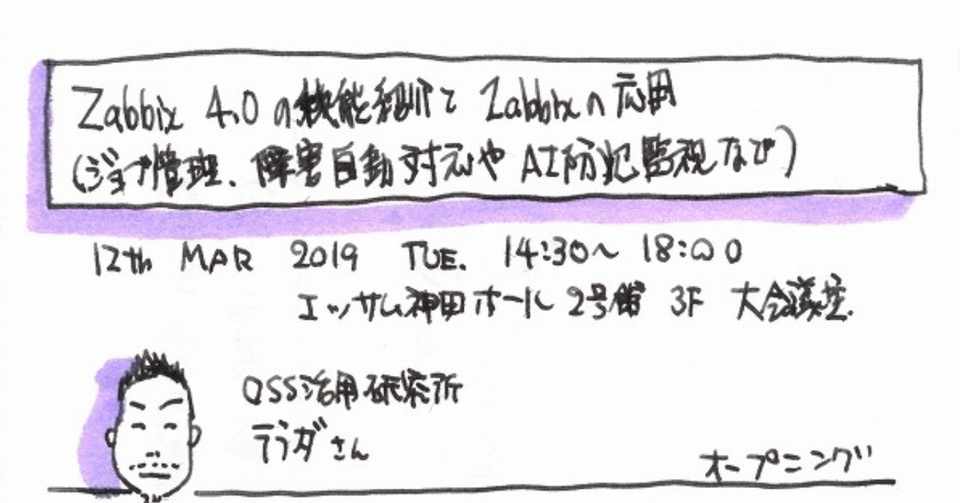 Zabbix 4.0 の機能紹介と Zabbixの応用
(ジョブ管理、障害自動対応や AI防犯監視など)
12th MAR 2019 TUE. 14:30〜 18:00
エッサム神田ホール 2号館 3F 大会議室
OSS活用研究所
テラダさん
オープニング